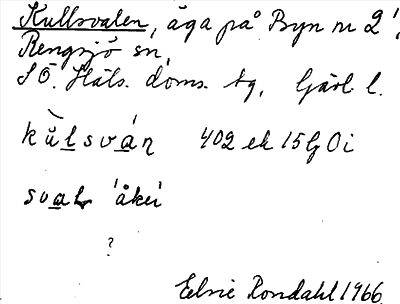 Kullsvalen, äga på Byn nr 2,
Rengsjö sn,
SÖ. Häls. doms. tg, Gävl. l.
kùlsván 402 ek 15 G 0 i
sval 'åker'
?
Elsie Rondahl 1966